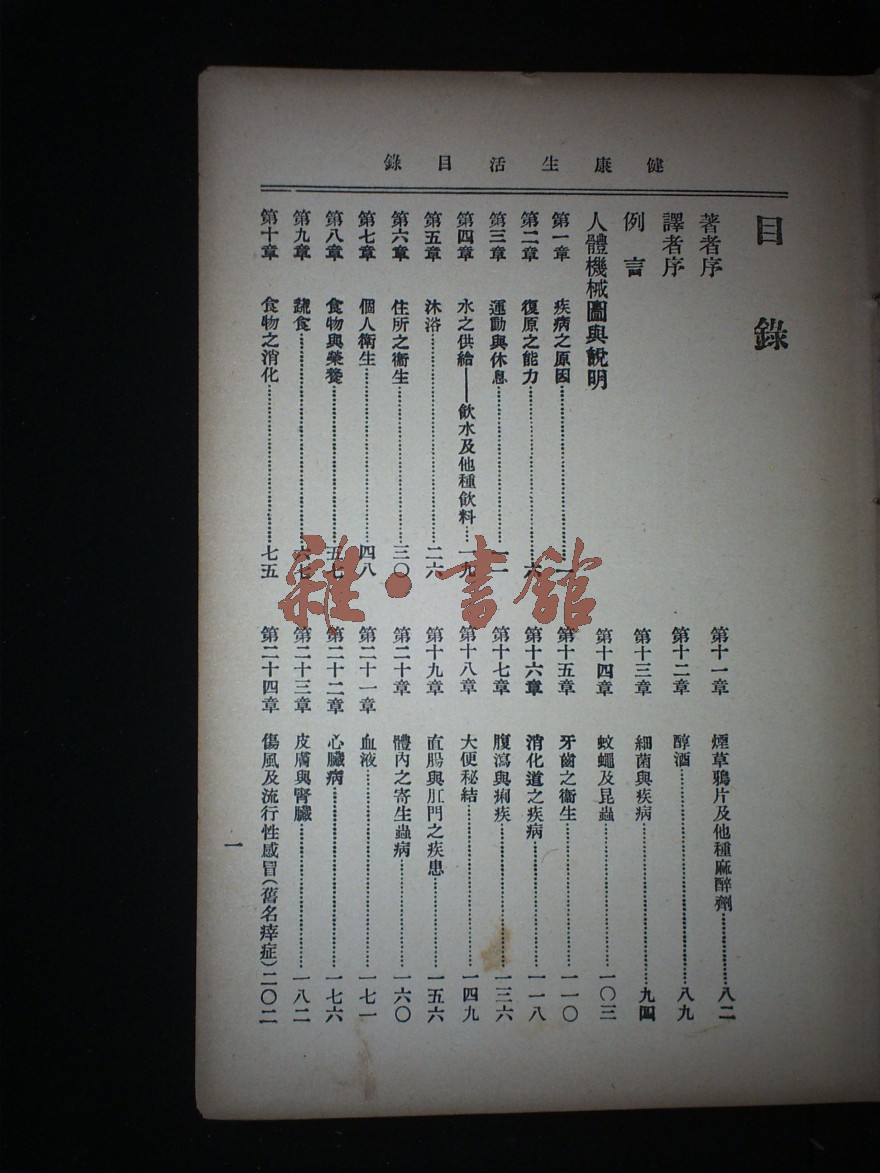 健康生活目錄
目錄
著者序
譯者序
例言
人體機械圖與說明
第一章 疾病之原因 一
第二章 復原之能力 六
第三章 運動與休息 一一
第四章 水之供給——飲水及他種飲料 一九
第五章 沐浴 二六
第六章 住所之衞生 三〇
第七章 個人衞生 四八
第八章 食物與榮養 五七
第九章 蔬食 六七
第十章 食物之消化 七五
第十一章 煙草鴉片及他種麻醉劑 八二
第十二章 醇酒 八九
第十三章 細菌與疾病 九四
第十四章 蚊蠅及昆蟲 一〇三
第十五章 牙齒之衞生 一一〇
第十六章 消化道之疾病 一一八
第十七章 腹瀉與痢疾 一三六
第十八章 大便秘結 一四九
第十九章 直腸與肛門之疾患 一五六
第二十章 體內之寄生蟲病 一六〇
第二十一章 血液 一七一
第二十二章 心臟病 一七六
第二十三章 皮膚與腎臟 一八二
第二十四章 傷風及流行性感冒(舊名瘁症) 二〇二
一
雜·書館